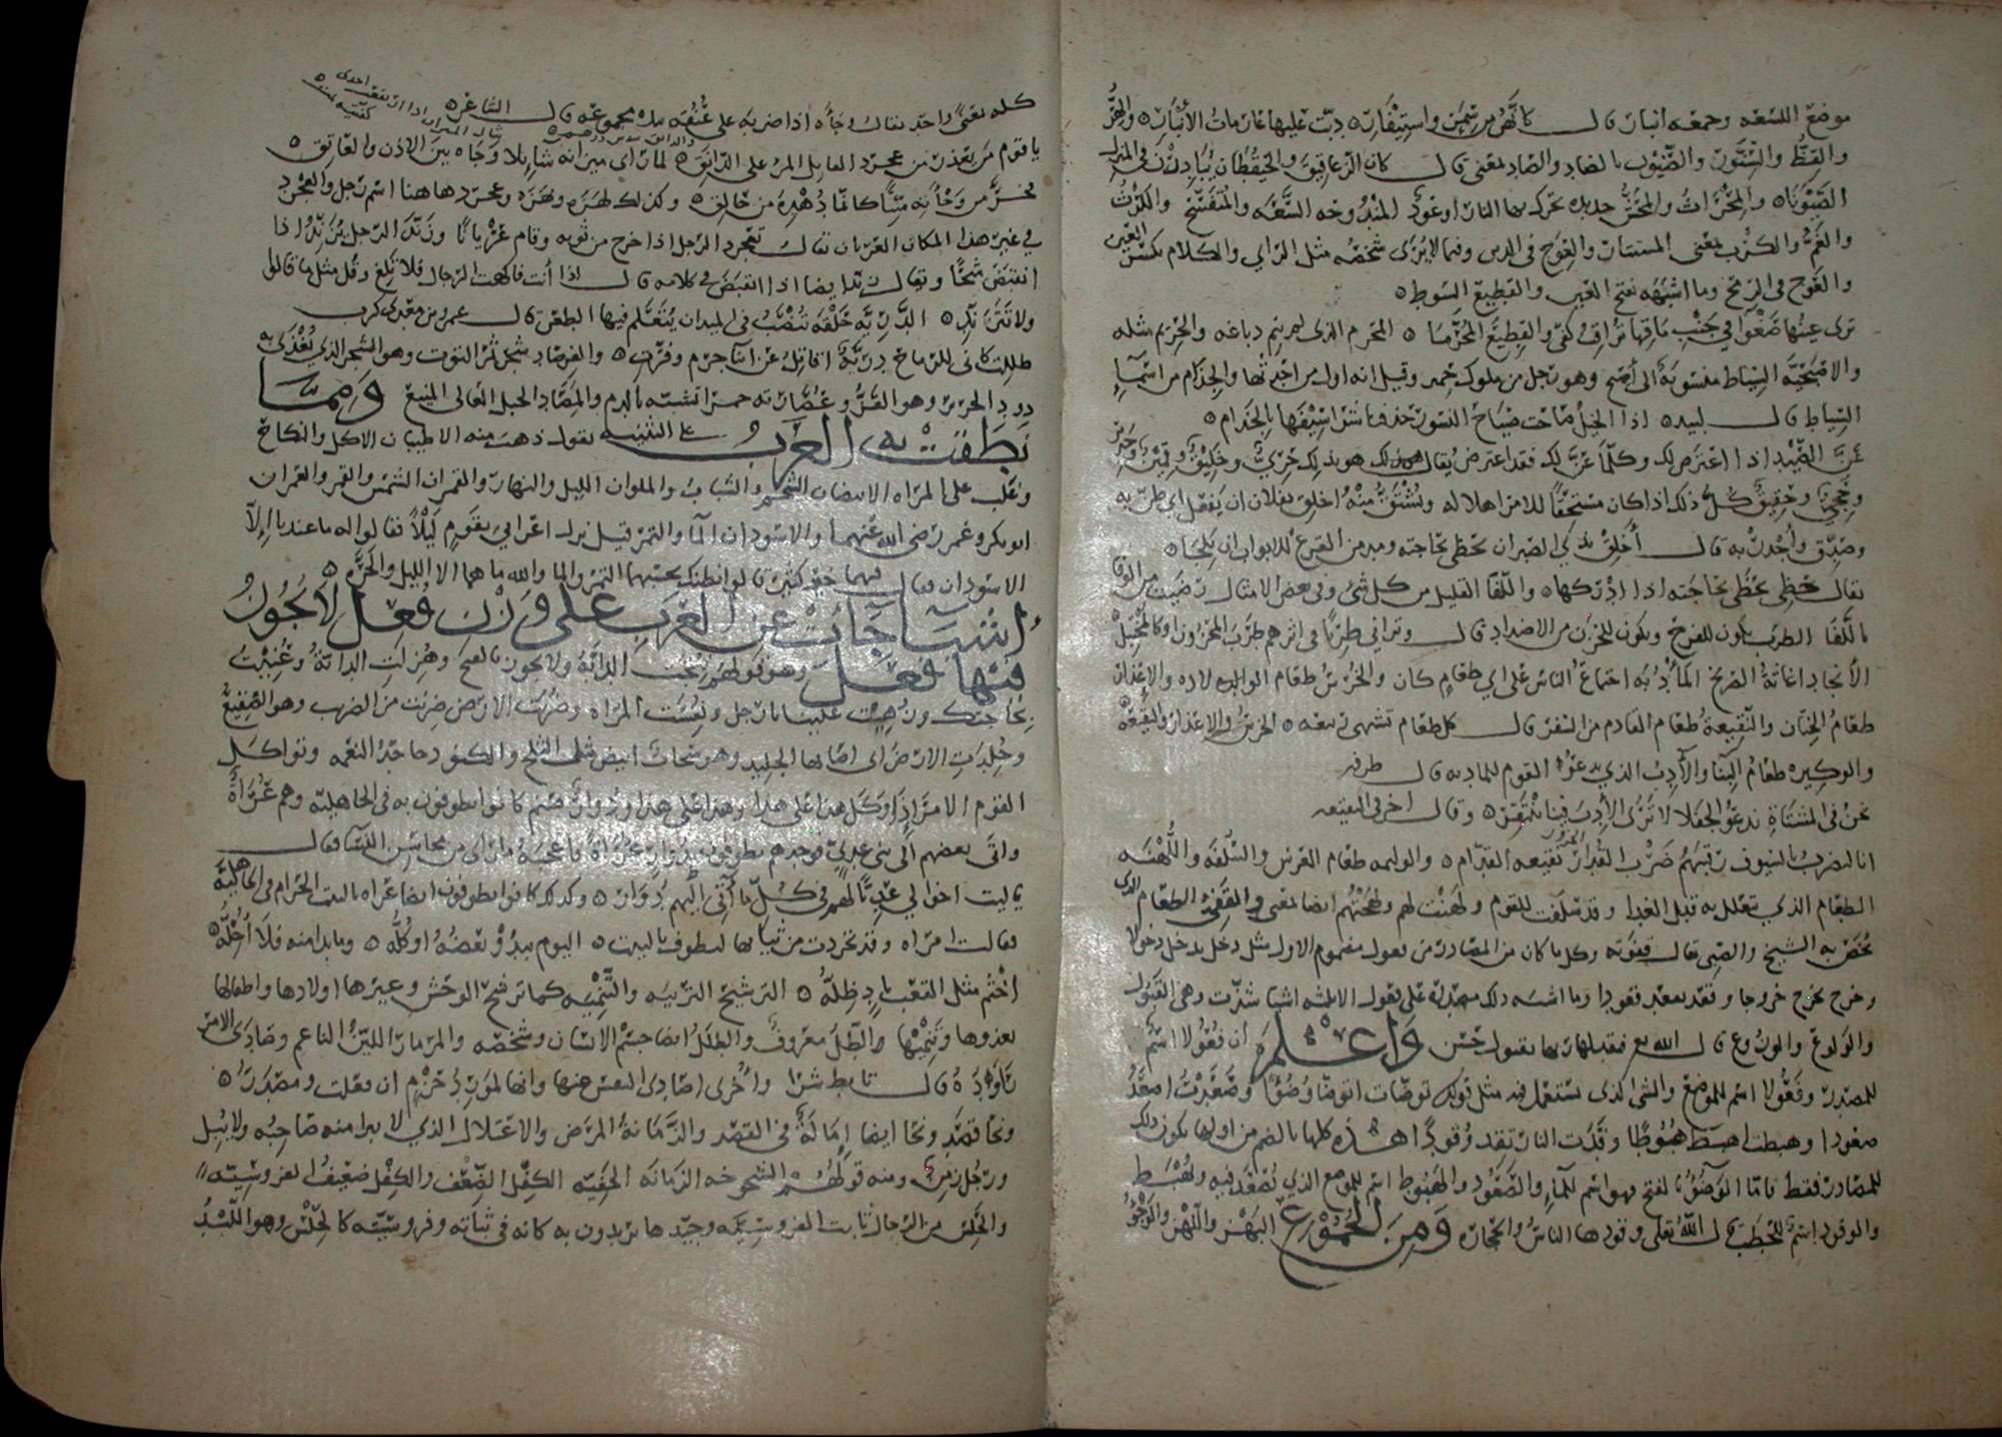 موضع اللسعه وجمعه انبار قال كانهن من سمن واستيفار دبت عليها عارمات الأنبار والهر
والقط والسنور والضيون بالضاد والصاد بمعنى قال كان الزعاقيق والحيقطان يبادرن في المنزل
الضيونا والمحراث والمحش حديده تحرك بها النار اوعود
والغم والكرب بمعنى المستتار والعوج في الدين وفيما لا يرى شخصه مثل الراي والكلام بكسر العين
والعوج في الرمح وما اشبهه بفتح العين والقطيع السوط
ترى عينها صغوا في جنب ماقها تراقب كفى والقطيع المحرما المحرم الذي لم يتم دباغه والحريم مثله
والاصبحية السياط منسوبة الى أصبح وهو رجل من ملوك حمير وقيل انه اول من اتخذها والجذام من اسماء
السياط قال لبيد اذا
عن الصيد اذا اعترض لك وكلما عن لك فقد اعترض يقال هو بذلك حري وخليق وقمين وجدير
وحجي وحقيق كل ذلك اذا كان مستحقا للامر اهلا له ويشتق منه اخلق بفلان ان يفعل اي
وصدق وأجدر به قال أخلق بذي الصبر ان يحظى بحاجته ومدمن القرع للابواب ان يلجا
يقال حظي يحظى بحاجته اذا ادركها واللفا القليل من كل شي وفي بعض الامثال رضيت من الوفا
باللفا الطرب يكون للفرح ويكون للحزن من الاضداد قال وتراني طربا في اثرهم طرب المحزون او كالمختبل
الأنجاد اغاثة الصريخ المأدبه اجتماع الناس على اي طعام كان والخرس طعام الوالده لاده والإعذار
طعام الختان والنقيعة طعام القادم من السفر قال كل طعام تشتهي ربيعه الخرس والاعذار والنقيعه
والوكيره طعام البنا والآدب الذي يدعو القوم للمادبه قال طرفه
نحن في المشتاة ندعو الجفلا لا ترى الآدب فينا ينتقر وقال اخر في النقيعه
انا لنضرب بالسيوف رؤسهم ضرب القدار نقيعه القدام والوليمه طعام العرس والسلفه واللهنه
الطعام الذي يتعلل به قبل الغدا وقد سلفت للقوم ولهنت لهم ولهنتهم ايضا بمعنى والقفي الطعام الذي
يخص به الشيخ والصبي يقال قفوته وكل ما كان من المصادر من فعول مضموم الاول مثل دخل يدخل دخولا
وخرج يخرج خروجا وقعد يقعد قعودا وما اشبه ذلك مصدره على فعول الا ثلثه اشيا شذت وهي القبول
والولوع والوزوع قال الله تع فتقبلها ربها بقبول حسن واعلم أن فعولا اسم
للمصدر وفعولا اسم للموضع والشي الذي يستعمل فيه مثل قولك توضات اتوضا وضوا وصعدت اصعد
صعودا وهبطت اهبط هبوطا وقدت النار تقد وقودا هذه كلها بالضم من اولها يكون ذلك
للمصادر فقط فاما الوضو بالفتح فهو اسم للمآء والصعود والهبوط اسم للموضع الذي تصعد فيه وتهبط
والوقود اسم للحطب قال الله تعلى وقودها الناس والحجاره ومن الجموع البهز واللهز والوجو
كله بمعنى واحد يقال وجأه اذا ضربه على عنقه بيده مجموعه قال الشاعر
يا قوم من يعذر من عجرد القاتل المرء على الدانق لما راى ميزانه شايلا وجاه بين الاذن والعاتق
فخر من وجأته ميتا كانما دهده من حالق وكذلك لهزه ونهزه وعجرد هاهنا اسم رجل والعجرد
في غير هذا المكان العريان يقال تعجرد الرجل اذا خرج من ثوبه وقام عريانا وزند الرجل يزند اذا
انقبض شحا ويقال تزند ايضا اذا انقبض في كلامه قال اذا أنت فاكهت الرجال فلا تلغ وقل مثل ما قالوا
ولا تتزند الدريه حلقه تنصب في الميدان يتعلم فيها الطعن قال عمرو بن معدي كرب
ظللت كاني للرماح دريّة اقاتل عن ابنا جرم وفرت والفرصاد شجر ثمر التوت وهو الشجر الذي يغذى به
دود الحرير وهو القز وعصارته حمرا تشبه بالدم والمصاد الجبل العالي المنيع ومما
نطقت به العرب على التثنيه يقول ذهب منه الاطيبان الاكل والنكاح
وغلب على المراه الابيضان الشحم والشباب والملوان الليل والنهار والقمران الشمس والقمر والعمران
ابو بكر وعمر رضي الله عنهما والاسودان المآ والتمر قيل نزل اعرابي بقوم ليلا فقالوا له ما عندنا إلا
الاسودان فقال فيهما خير كثير قالوا نظنك تحسبهما التمر والما والله ما هما الا الليل والحره
أشيآ جآت عن العرب على وزن فعل لا يجوز
فيها فعل وهو قولهم نتجت الدابة ولا يجوز بالفتح وهزلت الدابة وعنيت
بحاجتك وزهيت علينا يا رجل ونفست المراه وضربت الارض ضربت من الضرب وهو الصقيع
وجلدت الارض اى اصابها الجليد وهو سحاب ابيض مثل الثلج والكنود جاحد النعمه وتواكل
القوم الامر إذا وكل هذا على هذا وهذا على هذا ودوار صنم كانوا يطوفون به في الجاهليه وهم عراة
واتى بعضهم الى بني عدي فوجدهم يطوفون بدوار عراة فاعجبه ما راى من محاسن النسا فقال
يا ليت اخوالي عديا لهم في كل ما آتي اليهم دوار وكذلك كانوا يطوفون ايضا عراه بالبيت الحرام في الجاهلية
فقالت امراه وقد تجردت من ثيابها لتطوف بالبيت اليوم يبدو بعضه او كله وما بدا منه فلا أحله
اختم مثل القعب باد ظله الترشيح التربيه والتنميه كما ترشح الوحش وغيرها اولادها واطفالها
بعدوها وتنميها والظل معروف والطلل ايضا جسم الانسان وشخصه والمرمار اللين الناعم وصادى الامر
راوده قال تابط شرا وأخرى اصادي النفس عنها وانها لمورد حزم ان فعلت ومصدر
ونحا قصد ونحا ايضا إمالة في القصد والزمانة المرض والاعتلال الذي لا يبرا منه صاحبه ولا يبل
ورجل زمن ومنه قولهم الشيخوخه الزمانه الخفيه الكفل الضعف والكفل ضعيف الفروسيته
والحلس من الرجال ثابت الفروسيه وجيدها يريدون به كانه في ثباته وفروسيته كالحلس وهو اللبد